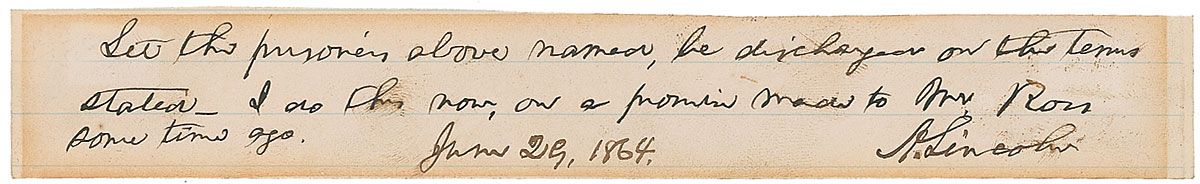 Let the prisoners above named, be discharged on the terms
stated— I do this now, on a promise made to Mr. Ross
some time ago.
June 29, 1864. A. Lincoln